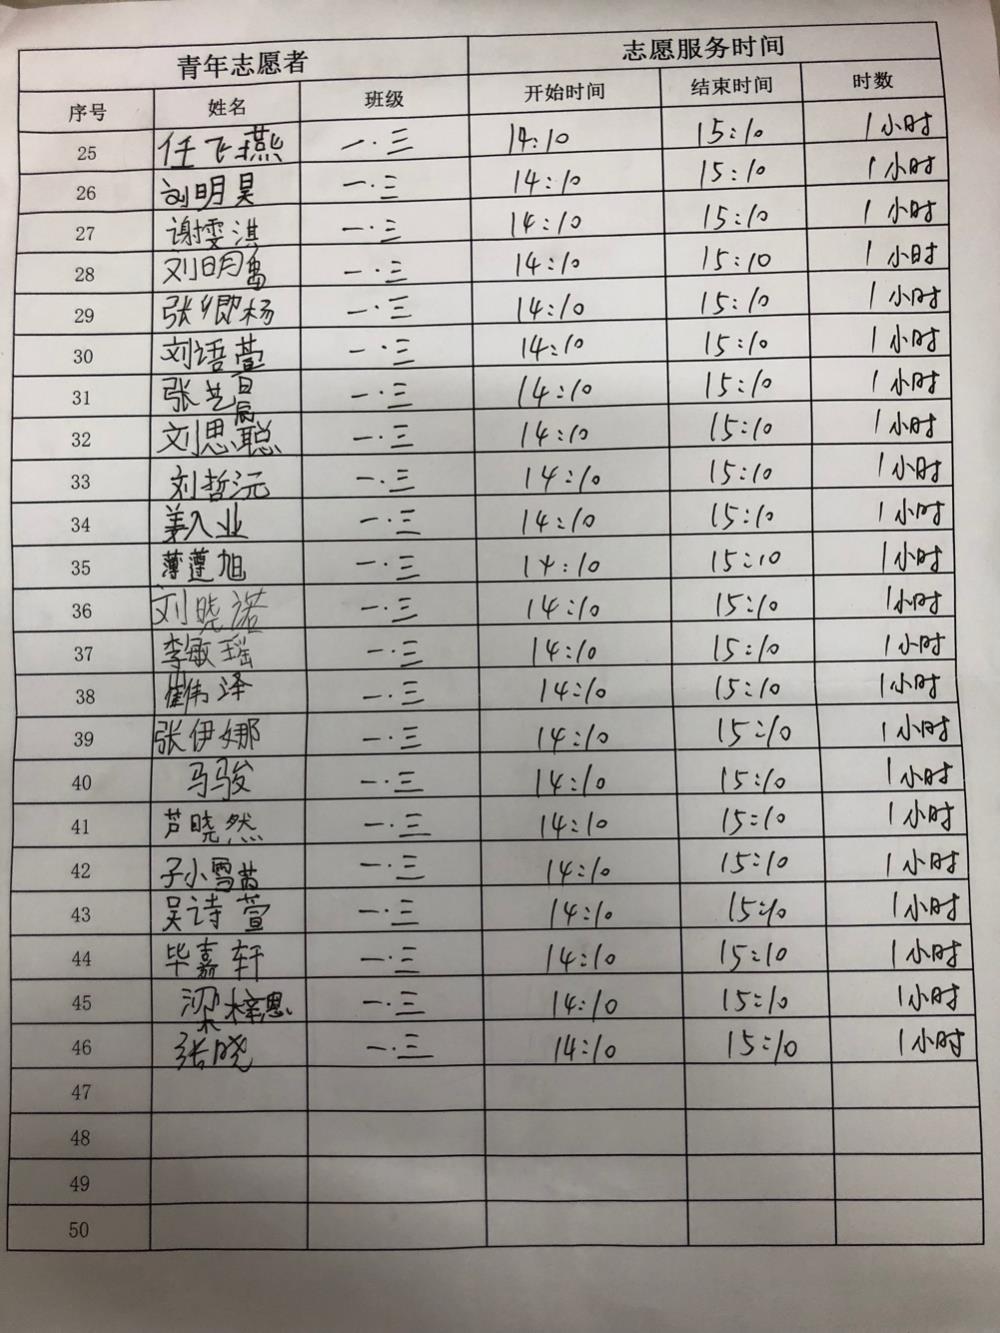 青年志愿者 志愿服务时间
序号 姓名 班级 开始时间 结束时间 时数
25 任飞燕 一.三 14:10 15:10 1小时
26 刘明昊 一.三 14:10 15:10 1小时
27 谢雯淇 一.三 14:10 15:10 1小时
28 刘明 一.三 14:10 15:10 1小时
29 张卿杨 一.三 14:10 15:10 1小时
30 刘语萱 一.三 14:10 15:10 1小时
31 张艺晨 一.三 14:10 15:10 1小时
32 刘思聪 一.三 14:10 15:10 1小时
33 刘哲沅 一.三 14:10 15:10 1小时
34 业 一.三 14:10 15:10 1小时
35 薄莲旭 一.三 14:10 15:10 1小时
36 刘晓诺 一.三 14:10 15:10 1小时
37 李敏瑶 一.三 14:10 15:10 1小时
38 崔伟泽 一.三 14:10 15:10 1小时
39 张伊娜 一.三 14:10 15:10 1小时
40 马骏 一.三 14:10 15:10 1小时
41 芦晓然 一.三 14:10 15:10 1小时
42 孙雪茜 一.三 14:10 15:10 1小时
43 吴诗萱 一.三 14:10 15:10 1小时
44 毕嘉轩 一.三 14:10 15:10 1小时
45 梁梓恩 一.三 14:10 15:10 1小时
46 张晓 一.三 14:10 15:10 1小时
47
48
49
50